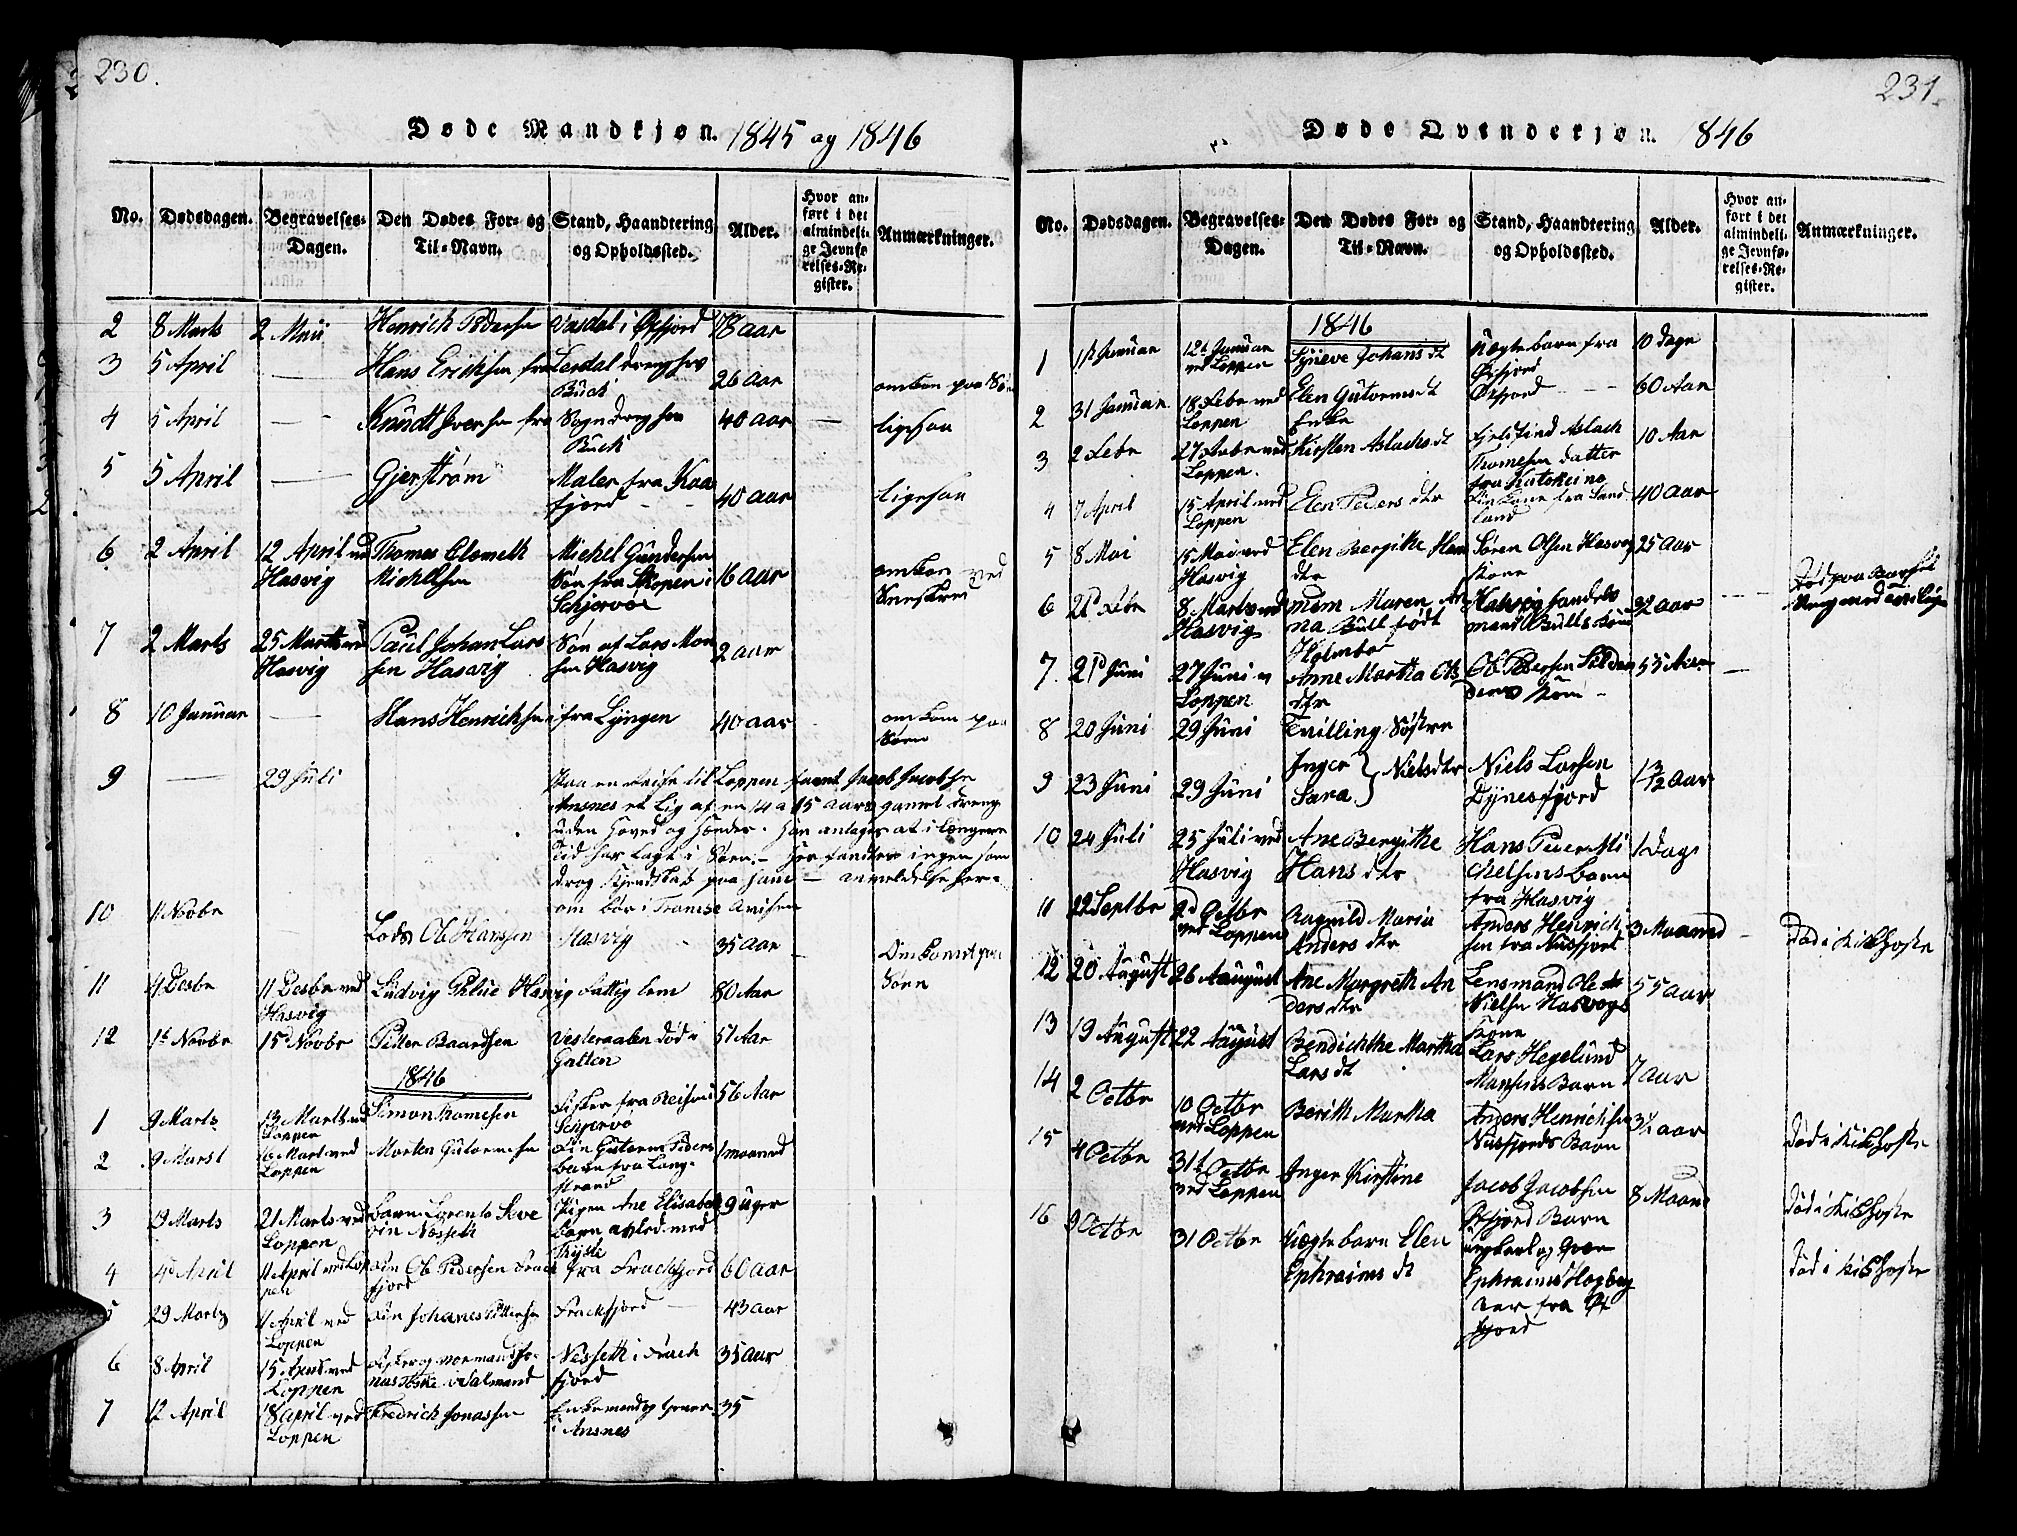 230.
Døde Mandkjøn. 1845 og 1846
No.
Dødsdagen.
Begravelses-
Dagen.
Den Dødes For- og
Til-Navn.
Stand, Haandtering
og Opholdssted.
Alder.
Hvor an-
ført i det
almindeli-
ge Jevnfø-
relses-Re-
gister.
Anmærkninger.
2 8 Marts 2 Mai Henrich Pedersen i Øxfjord 78 aar
3 5 April Hans Ericksen fra Leerdal dreng hos
Buck 26 aar omkom paa Søen
4 5 April Knudt Iversen fra Sogn dreng hos
Buck 40 aar ligesaa
5 5 April Gjerstrøm Maler fra Kaa
fjord 40 aar ligesaa
6 2 April 12 April ved
Hasvig Thomes Clemeth
Michelsen Michel Gundersen
Søn fra Skopen i
Schjervøe 16 aar omkom ved
Sneskred
7 2 Marts 25 Marts ved
Hasvig Paul Johan Lars
sen Hasvig Søn af Lars Mon
sen Hasvig 2 aar
8 10 Januar Hans Henrichsen fra Lyngen 40 aar omkom paa
Søen
9 29 Juli Paa en Reise til Loppen fandt Jacob Jacobsen
Ansnes et Lig af en 14 a 15 aars gamel dreng
uden Hoved og Hænder. Han antages at i længere
Tid har lagt i Søen. Her fandtes ingen som
drog Kjendskab paa ham — anmeldelse her-
om bør i Tromsø Avisen
10 11 Novbr Lods Ole Hanssen Hasvig 35 aar Omkomet paa
Søen
11 4 Desbr 11 Desbr ved
Hasvig Ludvig Hasvig Fattig lem 80 Aar
12 1t Novbr 15 Novbr Petter Baardsen Vesteraalen død i
Galten 51 Aar
1846
1 9 Marts 13 Marts ved
Loppen Simon Thomesen Fisker fra Reisen i
Schjervø 56 Aar
2 9 Marst 16 Mart ved
Loppen Morten Gutormsen Fin Gutorm Peders
barn fra Lang-
strand 1 maaned
3 19 Marts 21 Marts ved
Loppen Barn Lorents
Nesseth Pigen Ane Elisabeth
Barn avled med 9 uger
4 4d April 11 April ved Lop
pen Fin Ole Pedersen Frack
fjord fra Frackfjord 60 aar
5 29 Marts 11 April ved
Loppen Fin Johanes Pettersen Frackfjord 43 aar
6 8 April 15 April ved
Loppen Nesseth i Frach
fjord 35 aar
7 12 April 18 april ved
Loppen Fredrich Jonassen Enkemand og Gever
i Ansnes 35
231.
Døde Qvindekjøn. 1846
No.
Dødsdagen.
Begravelses-
Dagen.
Den Dødes For- og
Til-Navn.
Stand, Haandtering
og Opholdssted.
Alder.
Hvor an-
ført i det
almindeli-
ge Jevnfø-
relses-Re-
gister.
Anmærkninger.
1846
1 1ste Januar 12te Januar
ved Loppen Johans dt Uægte barn fra
Øxfjord 10 dage
2 31 Januar 18 Febr ved
Loppen Elen Gutormsdt
Enke Øxfjord 60 Aar
3 2 Febr 27 Febr ved
Loppen. Kirsten Aslachsdt Fjeldfind Aslach
Thomesen datter
fra Kutokeino 10 Aar
4 7 April 15 April ved
Loppen Elen Peders dtr Fin Kone fra Sand
land 40 aar
5 8 Mai 15 Mai ved
Hasvig Elen Bergithe Han
dtr Søren Olsen Hasvig
Kone 25 aar
6 21d Febr 8 Marts ved
Hasvig Maren An
na Bull født
Holmboe Hasvig Handels
mand Bulls Kone 32 aar Død paa Barsel
Seng med
7. 21d Juni 27 Juni v
Loppen Anne Martha Ols
dtr Ole Pedersen
Kone 55 Aar
8 20 Juni 29 Juni Tvilling Søstre
9 23 Juni 29 Juni Inger } Nielsdtr
Sara Niels Larsen
Dynesfjord 1 3/12 aar
10 24 Juli 25 Juli ved
Hasvig Ane Bergithe
Hans dtr Hans Peter Mi
chelsens barn
fra Hasvig 1 dag
11 22 Septbr 2d Octbr
ved Loppen Ragnild Maria
Anders dtr Anders Henrich
sen fra Nusfjord 3 Maaned Død i Kikhoste
12 20 August 26 August Ane Margreth An
ders dtr Lensmand Ole
Nielsen Hasvogs
Kone 55 aar
13 19 August 22 August Bendichthe Martha
Lars dt Lars Hegelund
Monsens Barn 7 aar
14 2 Octbr 10 Octbr
ved Loppen Berith Martha Anders Henrichsen
Nusfjords Barn 3 1/2 aar Død i Kikhoste
15 4 Octbr 31t Octbr
ved Loppen Inger Kirstine Jacob Jacobsen
Øxfjord Barn 8 Maan Død i Kikhoste
16 9 Octbr 31 Octbr Uægte barn Elen
Ephraims dt Ungkarl og Qven
Ephraims
fra Øx
fjord Død i Kikhoste